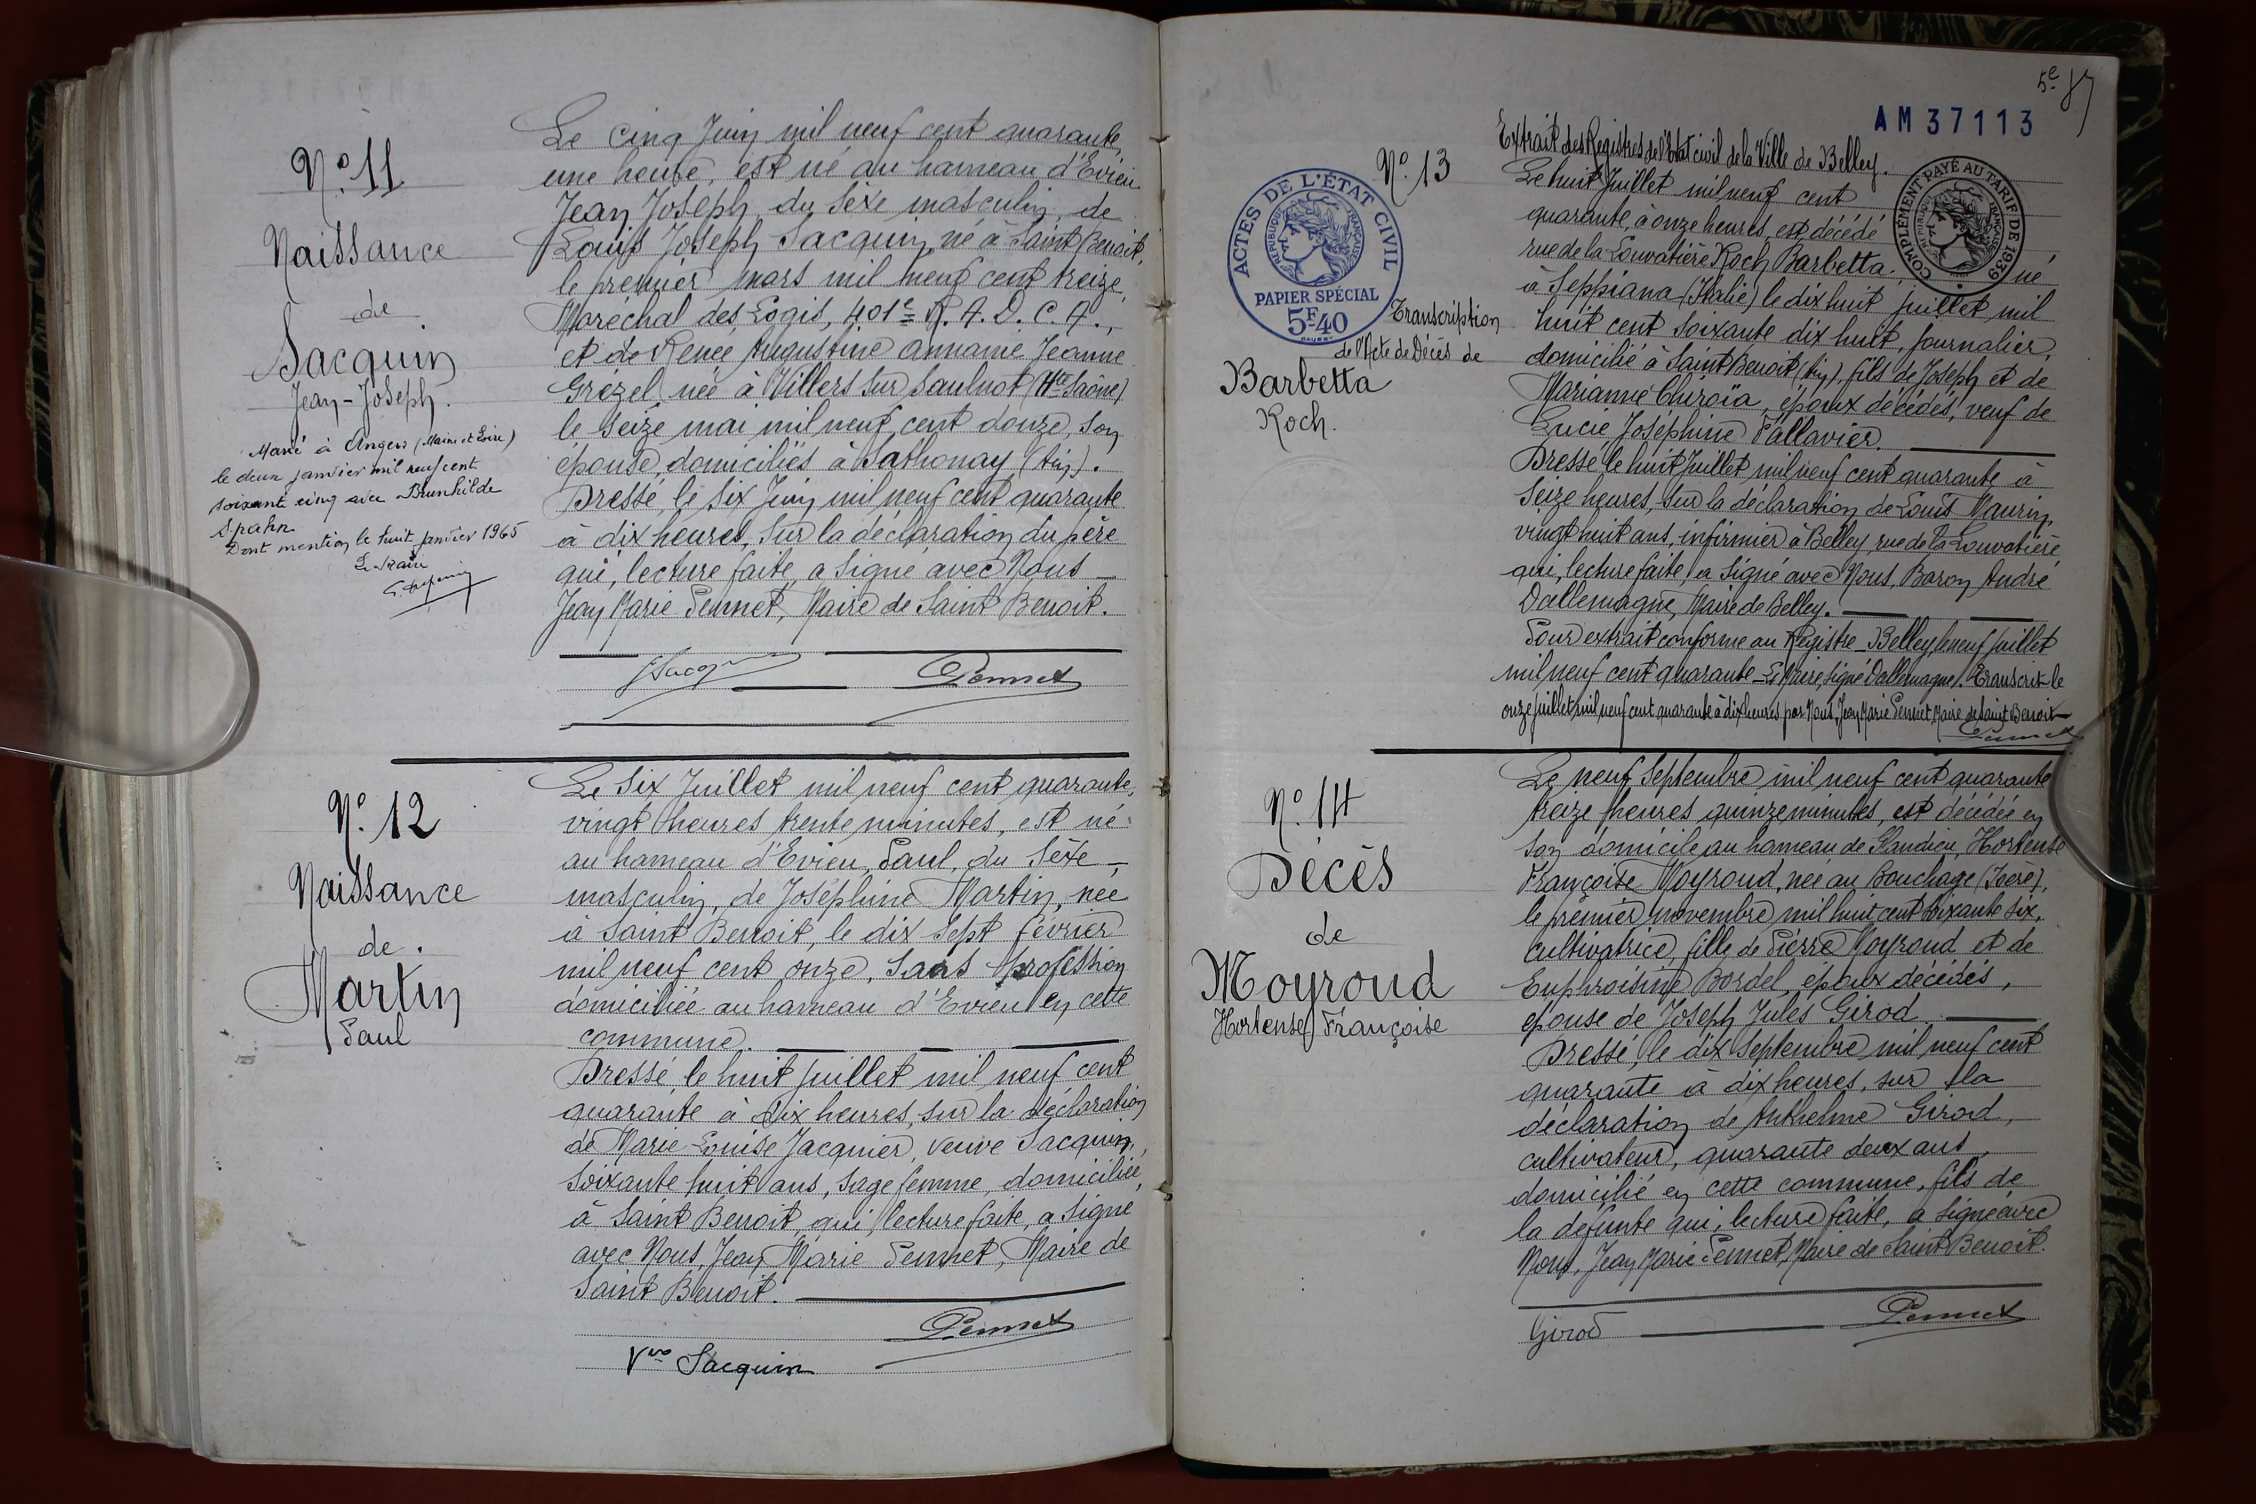 N° 11
Naissance
de
Sacquin
Jean-Joseph.
Marié à Angers (Maine et Loire)
le deux janvier mil neuf cent
soixante cinq avec Brunhilde
Spahn
Dont mention le huit janvier 1965
Le Maire
Le cinq Juin mil neuf cent quarante,
une heure, est né au hameau d'Evieu
Jean Joseph, du sexe masculin, de
Louis Joseph Sacquin, né à Saint Benoit,
le premier mars mil neuf cent treize,
Maréchal des Logis, 401e R. A. D. C. A.,
et de Renée Augustine Jeanne
Grézel, née à Villers sur Saulnot (Hte Saône)
le seize mai mil neuf cent douze, son
épouse, domiciliés à Sathonay (Ain).
Dressé, le six Juin mil neuf cent quarante
à dix heures, sur la déclaration du père
qui, lecture faite, a signé avec Nous
Jean Marie Pennet, Maire de Saint Benoit.
JSacq
Pennet
N° 12
Naissance
de
Martin
Paul
Le six Juillet mil neuf cent quarante,
vingt heures trente minutes, est né
au hameau d'Evieu, Paul, du sexe
masculin, de Joséphine Martin, née
à Saint Benoit, le dix sept février
mil neuf cent onze, sans profession
domiciliée au hameau d'Evieu en cette
commune.
Dressé, le huit Juillet mil neuf cent
quarante à dix heures, sur la déclaration
de Marie-Louise Jacquier, veuve Sacquin,
soixante huit ans, sage femme, domiciliée,
à Saint Benoit, qui, lecture faite, a signé
avec Nous, Jean Marie Pennet, Maire de
Saint Benoit.
Pennet
Vve Sacquin
5e 87
AM37113
N° 13
ACTES DE L'ÉTAT CIVIL
RÉPUBLIQUE FRANÇAISE
PAPIER SPÉCIAL
5F40
COMPLÉMENT PAYÉ AU TARIF DE 1939
RÉPUBLIQUE FRANÇAISE
Transcription
de l'Acte de Décès de
Barbetta
Roch.
Extrait des Registres de l'Etat civil de la Ville de Belley.
Le huit Juillet mil neuf cent
quarante, à onze heures, est décédé
rue de la Louvatière Roch Barbetta, né
à Seppiana (Italie) le dix huit juillet mil
huit cent soixante dix huit, journalier,
domicilié à Saint Benoit (Ain), fils de Joseph et de
Marianne Chiroïa, époux décédés, veuf de
Lucie Joséphine Pallavier.
Dressé le huit Juillet mil neuf cent quarante à
seize heures, sur la déclaration de Louis Maurin,
vingt huit ans, infirmier à Belley, rue de la Louvatière
qui, lecture faite, a signé avec Nous, Baron André
Dallemagne, Maire de Belley.
Pour extrait conforme au Registre_Belley, le neuf juillet
mil neuf cent quarante_Le Maire, signé Dallemagne. Transcrit le
onze juillet mil neuf cent quarante à dix heures par Nous, Jean Marie Pennet, Maire de Saint Benoit
Pennet
N° 14
Décès
de
Moyroud
Hortense Françoise
Le neuf Septembre mil neuf cent quarante
treize heures quinze minutes, est décédée en
son domicile au hameau de Glandieu, Hortense
Françoise Moyroud, née au Bouchage (Isère),
le premier novembre mil huit cent soixante six,
cultivatrice, fille de Pierre Moyroud et de
Euphroisine Bordel, époux décédés,
épouse de Joseph Jules Girod
Dressé, le dix Septembre mil neuf cent
quarante à dix heures, sur la
déclaration de Anthelme Girod,
cultivateur, quarante deux ans,
domicilié en cette commune, fils de
la défunte qui, lecture faite, a signé avec
Nous, Jean Marie Pennet, Maire de Saint Benoit.
Girod
Pennet